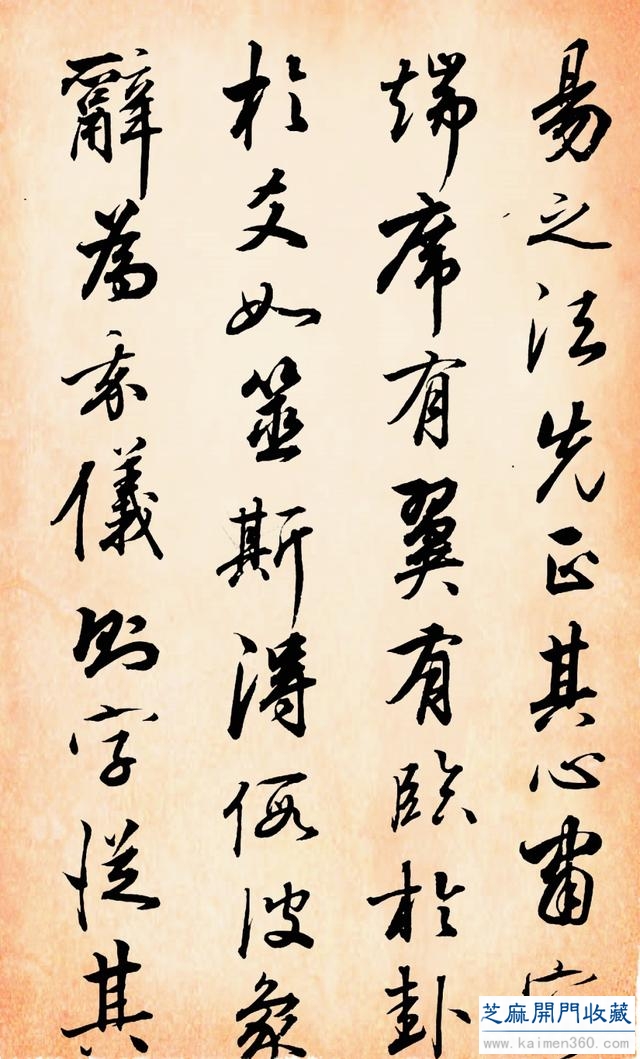 易之法先正其心肅
端席有翼有臨於卦
於爻如筮斯得假彼象
辭為我儀則字從其
芝麻開門收藏
www.kaimen360.com